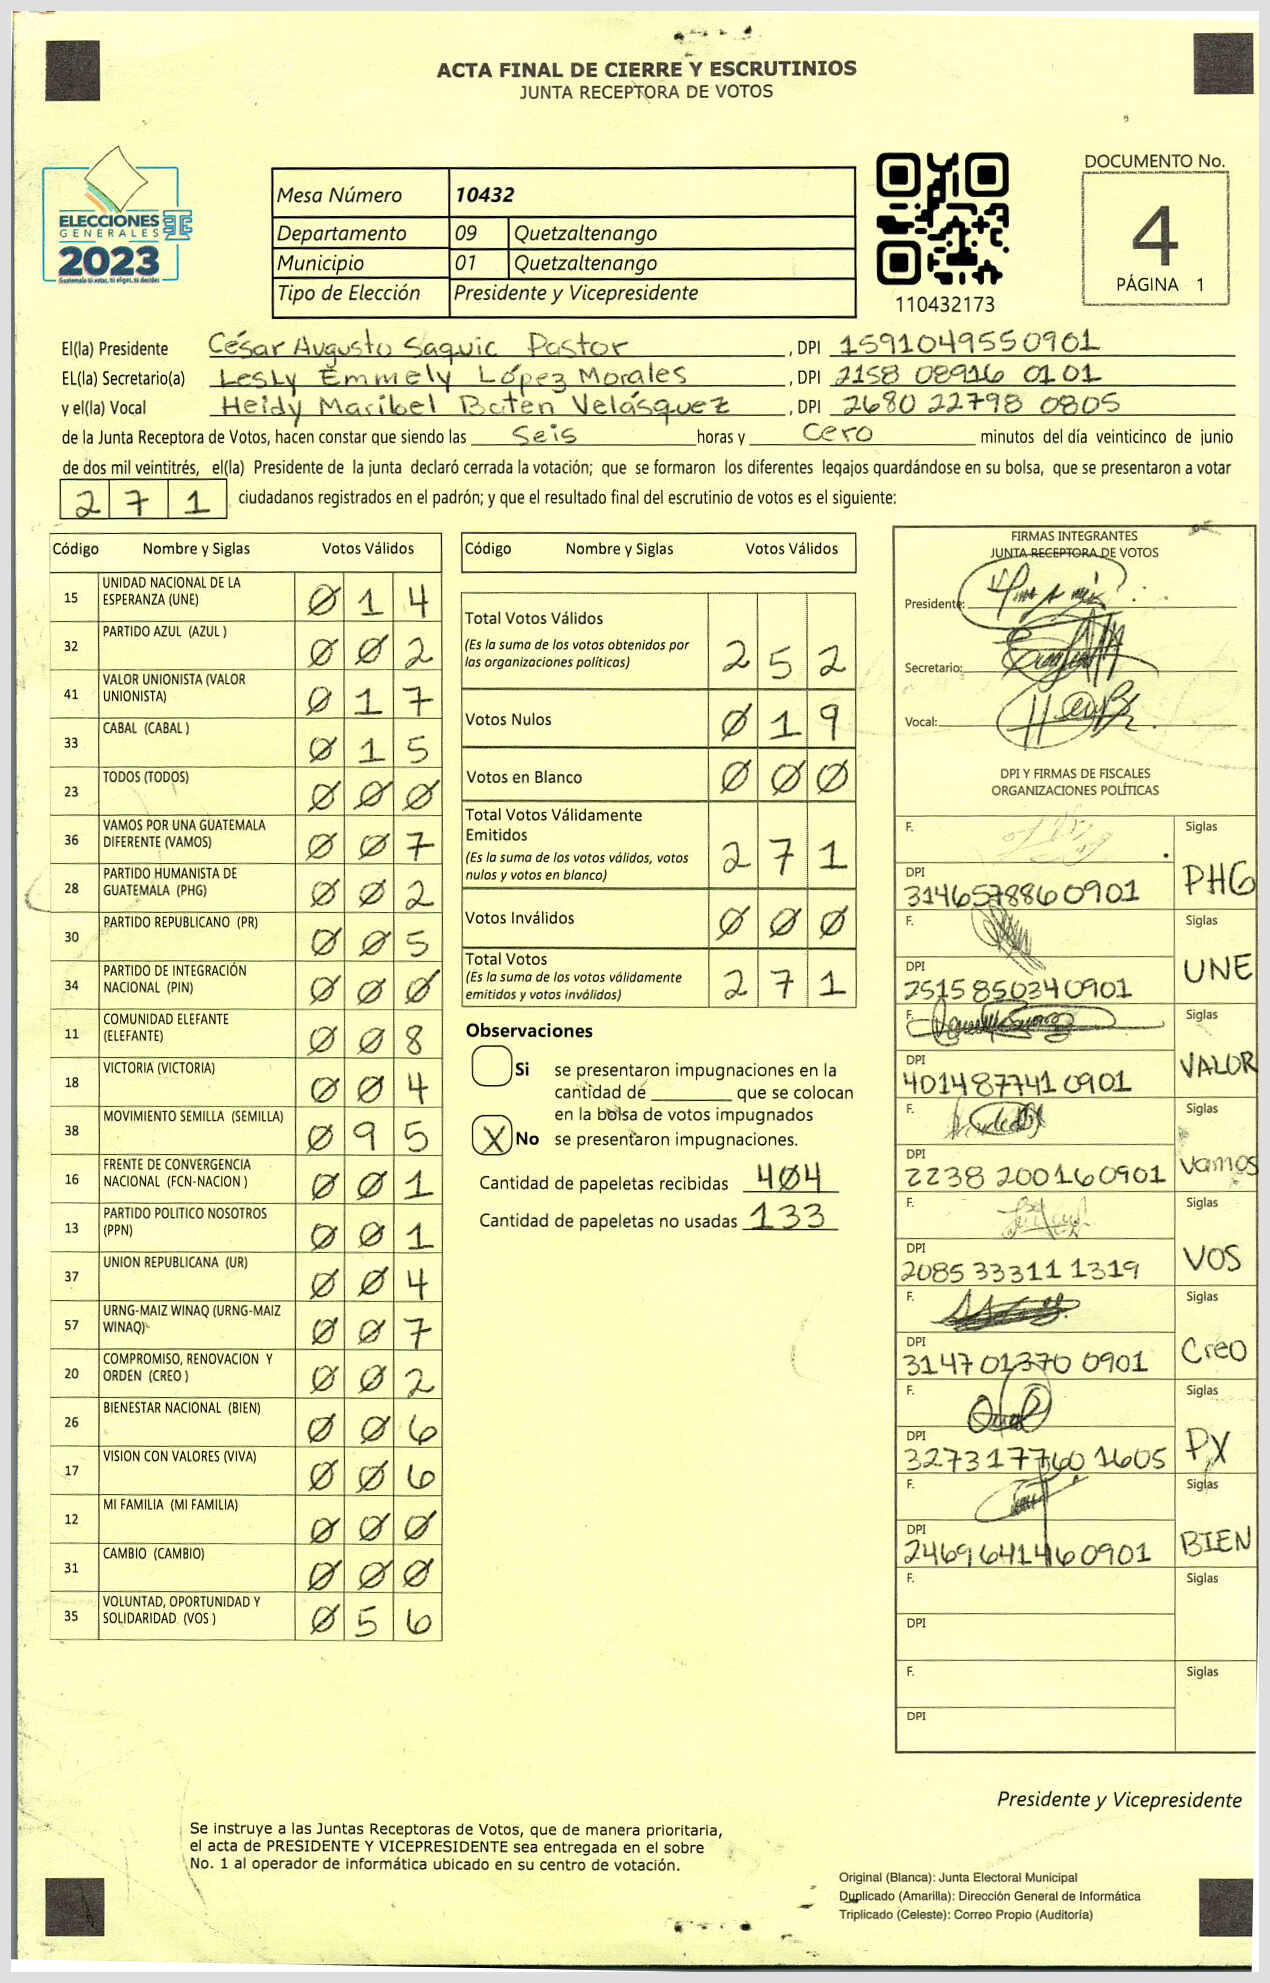 ACTA FINAL DE CIERRE Y ESCRUTINIOS
JUNTA RECEPTORA DE VOTOS
ELECCIONES
GENERALES
2023
Guatemala tú votas, tú eliges, tú decides
TSE
Mesa Número 10432
Departamento 09 Quetzaltenango
Municipio 01 Quetzaltenango
Tipo de Elección Presidente y Vicepresidente
110432173
DOCUMENTO No.
4
PÁGINA 1
El(la) Presidente César Augusto Saquic Pastor, DPI 1591049550901
EL(la) Secretario(a) Lesly Emmely López Morales, DPI 2158 08916 0101
y el(la) Vocal Heidy Maribel Batén Velásquez, DPI 2680 22798 0805
de la Junta Receptora de Votos, hacen constar que siendo las Seis horas y Cero minutos del día veinticinco de junio
de dos mil veintitrés, el(la) Presidente de la junta declaró cerrada la votación; que se formaron los diferentes legajos guardándose en su bolsa, que se presentaron a votar
271 ciudadanos registrados en el padrón; y que el resultado final del escrutinio de votos es el siguiente:
Código Nombre y Siglas Votos Válidos
15 UNIDAD NACIONAL DE LA ESPERANZA (UNE) 014
32 PARTIDO AZUL (AZUL ) 002
41 VALOR UNIONISTA (VALOR UNIONISTA) 017
33 CABAL (CABAL ) 015
23 TODOS (TODOS) 000
36 VAMOS POR UNA GUATEMALA DIFERENTE (VAMOS) 007
28 PARTIDO HUMANISTA DE GUATEMALA (PHG) 002
30 PARTIDO REPUBLICANO (PR) 005
34 PARTIDO DE INTEGRACIÓN NACIONAL (PIN) 000
11 COMUNIDAD ELEFANTE (ELEFANTE) 008
18 VICTORIA (VICTORIA) 004
38 MOVIMIENTO SEMILLA (SEMILLA) 095
16 FRENTE DE CONVERGENCIA NACIONAL (FCN-NACION ) 001
13 PARTIDO POLITICO NOSOTROS (PPN) 001
37 UNION REPUBLICANA (UR) 004
57 URNG-MAIZ WINAQ (URNG-MAIZ WINAQ) 007
20 COMPROMISO, RENOVACION Y ORDEN (CREO ) 002
26 BIENESTAR NACIONAL (BIEN) 006
17 VISION CON VALORES (VIVA) 006
12 MI FAMILIA (MI FAMILIA) 000
31 CAMBIO (CAMBIO) 000
35 VOLUNTAD, OPORTUNIDAD Y SOLIDARIDAD (VOS ) 056
Código Nombre y Siglas Votos Válidos
Total Votos Válidos
(Es la suma de los votos obtenidos por
las organizaciones políticas) 252
Votos Nulos 019
Votos en Blanco 000
Total Votos Válidamente
Emitidos
(Es la suma de los votos válidos, votos
nulos y votos en blanco) 271
Votos Inválidos 000
Total Votos
(Es la suma de los votos válidamente
emitidos y votos inválidos) 271
Observaciones
Si se presentaron impugnaciones en la
cantidad de ________ que se colocan
en la bolsa de votos impugnados
X No se presentaron impugnaciones.
Cantidad de papeletas recibidas 404
Cantidad de papeletas no usadas 133
FIRMAS INTEGRANTES
JUNTA RECEPTORA DE VOTOS
Presidente:
Secretario:
Vocal:
DPI Y FIRMAS DE FISCALES
ORGANIZACIONES POLÍTICAS
F. Siglas
DPI 3146578860901 PHG
F. Siglas
DPI 2515850340901 UNE
F. Siglas
DPI 4014877410901 VALOR
F. Siglas
DPI 2238 200160901 Vamos
F. Siglas
DPI 2085 33311 1319 VOS
F. Siglas
DPI 3147 01370 0901 Creo
F. Siglas
DPI 3273177601605 PX
F. Siglas
DPI 2469641460901 BIEN
F. Siglas
DPI
F. Siglas
DPI
Presidente y Vicepresidente
Se instruye a las Juntas Receptoras de Votos, que de manera prioritaria,
el acta de PRESIDENTE Y VICEPRESIDENTE sea entregada en el sobre
No. 1 al operador de informática ubicado en su centro de votación.
Original (Blanca): Junta Electoral Municipal
Duplicado (Amarilla): Dirección General de Informática
Triplicado (Celeste): Correo Propio (Auditoría)